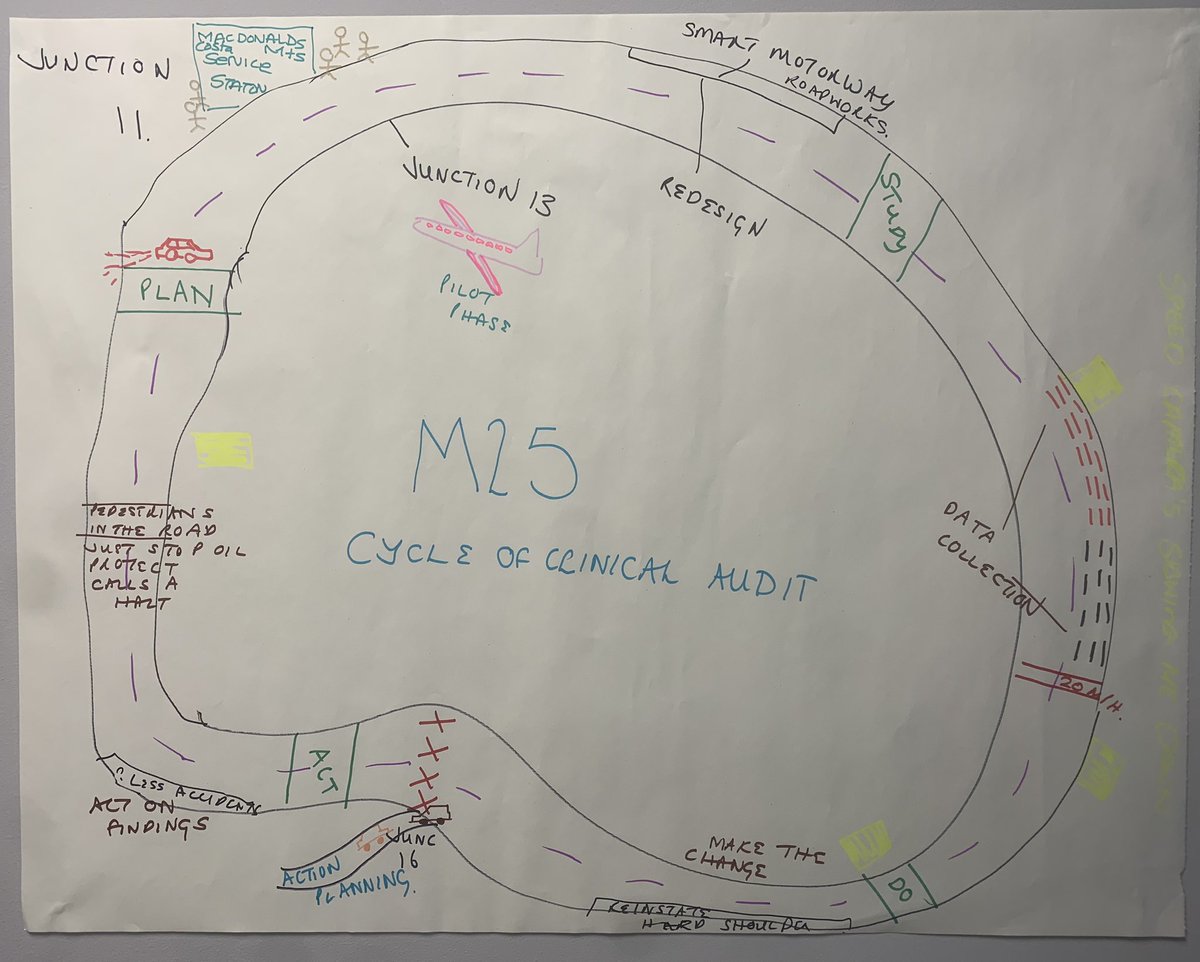 JUNCTION
11.
MACDONALDS
COSTA M+S
SERVICE
STATON
SMART MOTORWAY
ROADWORKS.
JUNCTION 13
REDESIGN
STUDY
PLAN
PILOT
PHASE
M25
CYCLE OF CLINICAL AUDIT
PEDESTRIANS
IN THE ROAD
JUST STOP OIL
PROTECT
CALLS A
HALT
DATA
COLLECTION
20 M/H.
SPEED CAMERAS
ACT
? LESS ACCIDENTS
ACT ON
FINDINGS
JUNC
16
ACTION
PLANNING.
MAKE THE
CHANGE
DO
REINSTATE
HARD SHOULDER